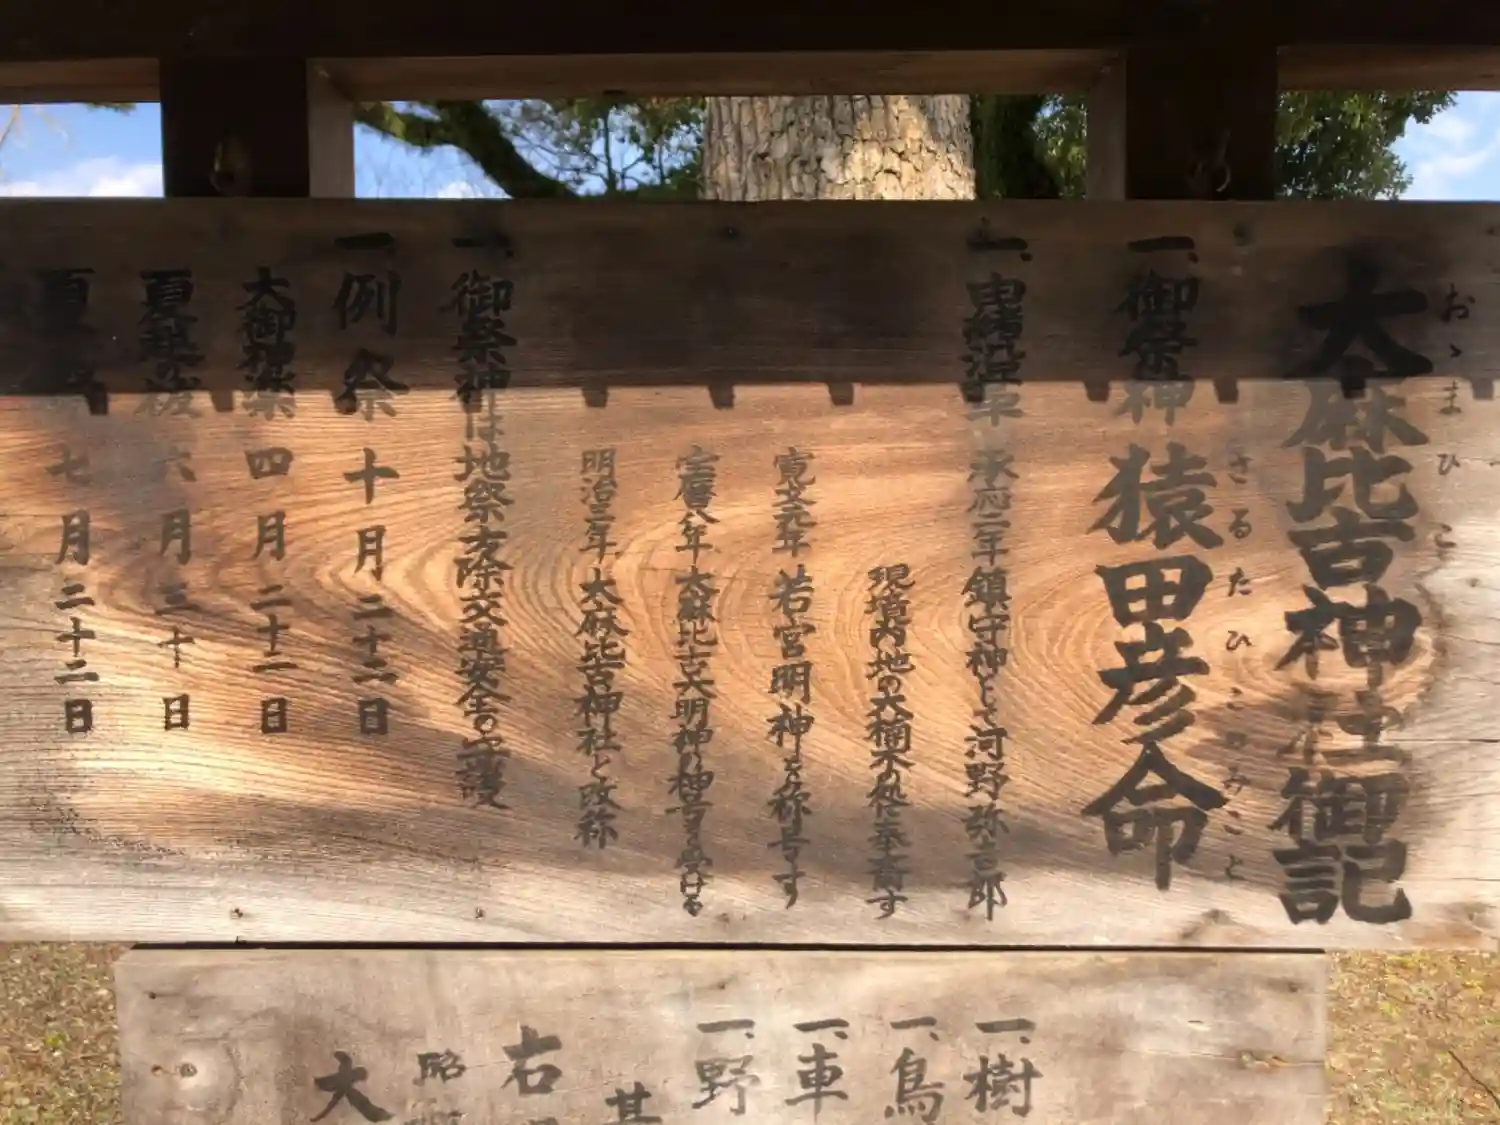 大麻比古神社御記
おゝまひこ
一、御祭神 猿田彦命
さるたひこのみこと
一、由緒沿革 承応二年 鎮守神として河野弥吉郎
現境内地の大楠木の処に奉斎す
寛文元年 若宮明神と称号す
宝暦八年 大麻比古大明神の神号を受ける
明治三年 大麻比古神社と改称
一、御祭神は地祭方除交通安全の守護
一例祭 十月二十二日
大御神楽 四月二十二日
夏越の祓 六月三十日
夏 七月二十二日
一、樹
一、鳥
一、車
一、野
其
右
昭
大